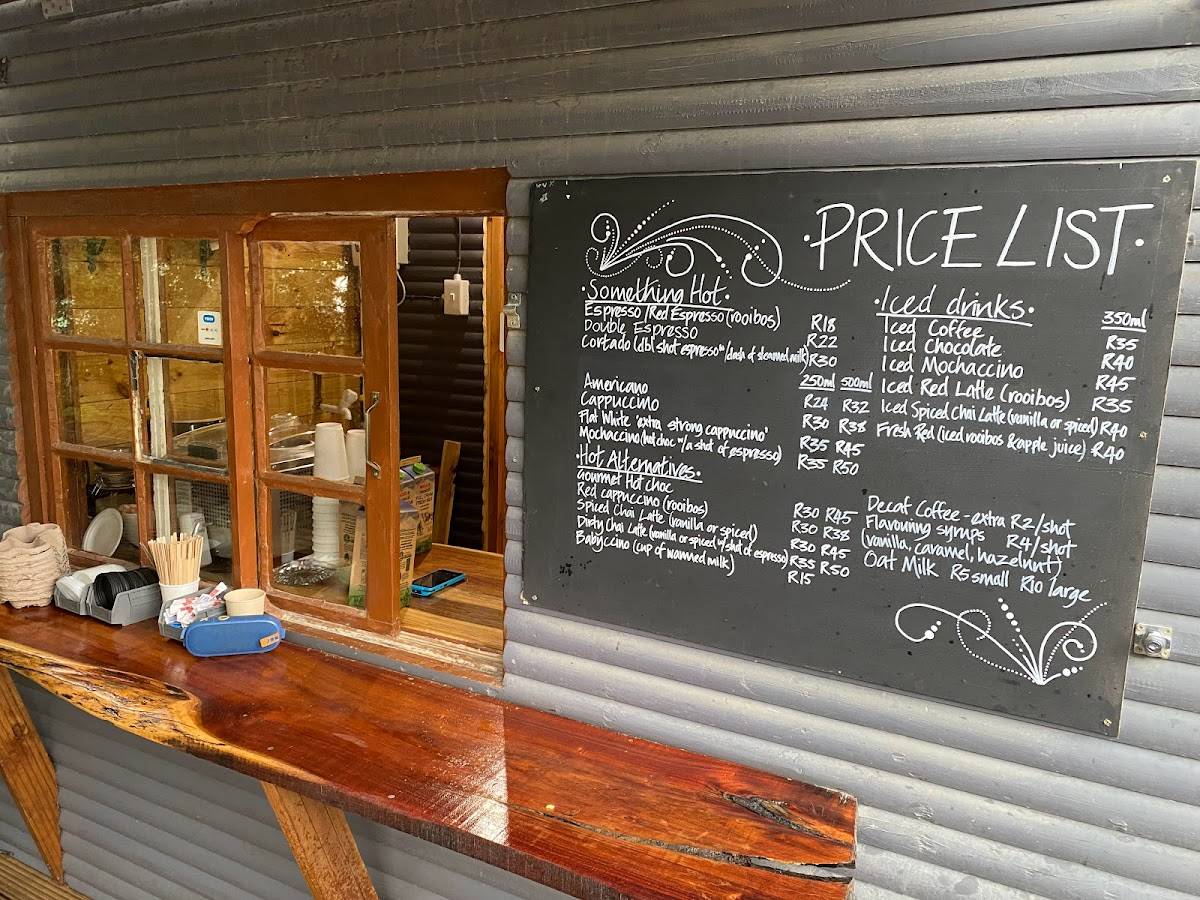 ·PRICE LIST·
·Something Hot·
Espresso/Red Espresso (rooibos) R18
Double Espresso R22
Cortado (dbl shot espresso w/dash of steamed milk) R30
250ml 500ml
Americano R24 R32
Cappuccino R30 R38
Flat White 'extra strong cappuccino' R35 R45
Mochaccino (hot choc w/a shot of espresso) R35 R50
·Hot Alternatives·
Gourmet Hot choc R30 R45
Red cappuccino (rooibos) R30 R38
Spiced Chai Latte (vanilla or spiced) R30 R45
Dirty Chai Latte (vanilla or spiced w/shot of espresso) R35 R50
Babyccino (cup of warmed milk) R15
·Iced drinks· 350ml
Iced Coffee R35
Iced Chocolate R40
Iced Mochaccino R45
Iced Red Latte (rooibos) R35
Iced Spiced Chai Latte (vanilla or spiced) R40
Fresh Red (iced rooibos & apple juice) R40
Decaf Coffee - extra R2/shot
Flavouring syrups R4/shot
(vanilla, caramel, hazelnut)
Oat Milk R5 small R10 large